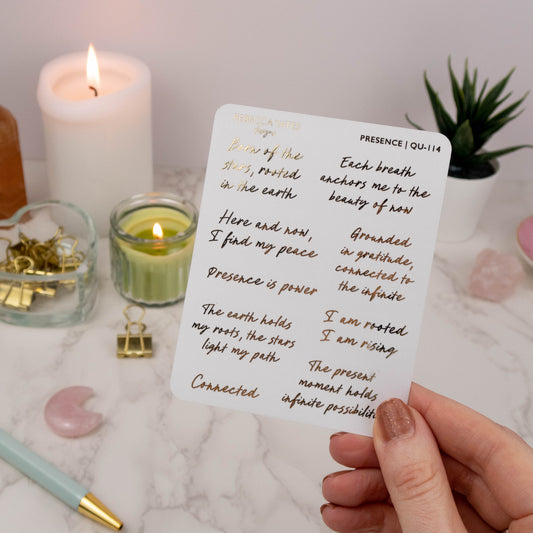 Designs
PRESENCE | QU-114
Born of the
stars, rooted
in the earth
Each breath
anchors me to the
beauty of now
Here and now,
I find my peace
Grounded
in gratitude,
connected to
the infinite
Presence is power
The earth holds
my roots, the stars
light my path
I am rooted
I am rising
Connected
The present
moment holds
infinite possibiliti